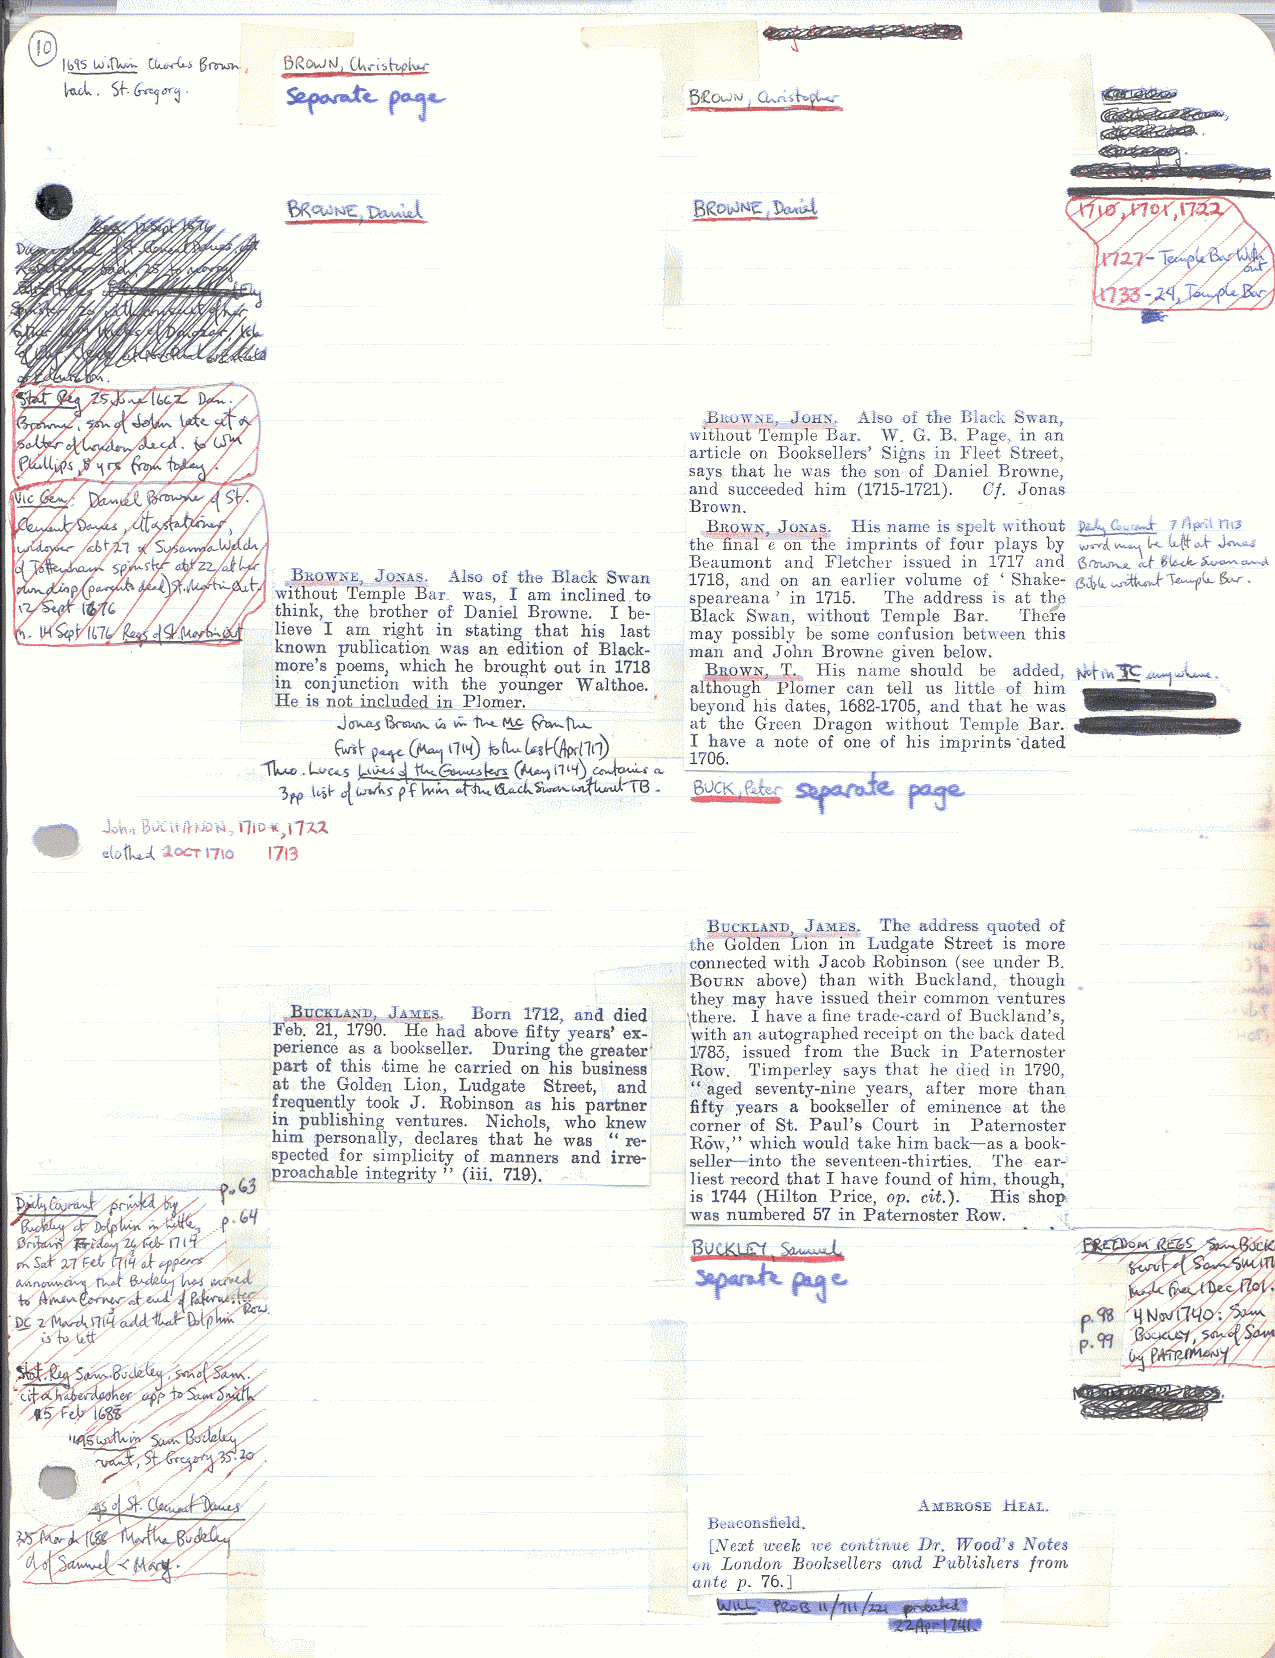 10
1695 within Charles Brown,
bach. St. Gregory.
BROWN, Christopher
separate page
BROWN, Christopher
BROWNE, Daniel
BROWNE, Daniel
1710, 1701, 1722
1727 - Temple Bar With
out
1733 - 24, Temple Bar
12 Sept 1676
Stat Reg 25 June 1662 Dan.
Browne, son of John late cit &
salter of London decd. to Wm
Phillips, 8 yrs from today.
Vic Gen: Daniel Browne of St.
Clement Danes, cit & stationer,
widower abt 27 & Susanna Welch
of Tottenham spinster abt 22, at her
own disp (parents dead) St. Martin Out.
12 Sept 1676
m. 14 Sept 1676 Regs of St Martin Out
BROWNE, JONAS. Also of the Black Swan
without Temple Bar was, I am inclined to
think, the brother of Daniel Browne. I be-
lieve I am right in stating that his last
known publication was an edition of Black-
more's poems, which he brought out in 1718
in conjunction with the younger Walthoe.
He is not included in Plomer.
Jonas Brown is in the MC from the
first page (May 1714) to the last (Apr 1717)
Theo. Lucas Lives of the Gamesters (May 1714) contains a
3pp list of works pf him at the Black Swan without TB.
BROWNE, JOHN. Also of the Black Swan,
without Temple Bar. W. G. B. Page, in an
article on Booksellers' Signs in Fleet Street,
says that he was the son of Daniel Browne,
and succeeded him (1715-1721). Cf. Jonas
Brown.
BROWN, JONAS. His name is spelt without
the final e on the imprints of four plays by
Beaumont and Fletcher issued in 1717 and
1718, and on an earlier volume of ' Shake-
speareana ' in 1715. The address is at the
Black Swan, without Temple Bar. There
may possibly be some confusion between this
man and John Browne given below.
BROWN, T. His name should be added,
although Plomer can tell us little of him
beyond his dates, 1682-1705, and that he was
at the Green Dragon without Temple Bar.
I have a note of one of his imprints dated
1706.
Daily Courant 7 April 1713
word may be left at Jonas
Browne at Black Swan and
Bible without Temple Bar.
Not in JC anywhere.
BUCK, Peter separate page
John BUCHANON, 1710*, 1722
clothed 2 OCT 1710 1713
BUCKLAND, JAMES. Born 1712, and died
Feb. 21, 1790. He had above fifty years' ex-
perience as a bookseller. During the greater
part of this time he carried on his business
at the Golden Lion, Ludgate Street, and
frequently took J. Robinson as his partner
in publishing ventures. Nichols, who knew
him personally, declares that he was " re-
spected for simplicity of manners and irre-
proachable integrity " (iii. 719).
BUCKLAND, JAMES. The address quoted of
the Golden Lion in Ludgate Street is more
connected with Jacob Robinson (see under B.
BOURN above) than with Buckland, though
they may have issued their common ventures
there. I have a fine trade-card of Buckland's,
with an autographed receipt on the back dated
1783, issued from the Buck in Paternoster
Row. Timperley says that he died in 1790,
" aged seventy-nine years, after more than
fifty years a bookseller of eminence at the
corner of St. Paul's Court in Paternoster
Row," which would take him back—as a book-
seller—into the seventeen-thirties. The ear-
liest record that I have found of him, though,
is 1744 (Hilton Price, op. cit.). His shop
was numbered 57 in Paternoster Row.
p. 63
p. 64
Daily Courant printed by
Buckley at Dolphin in Little
Britain Friday 26 Feb 1714
on Sat 27 Feb 1714 at appears
announcing that Buckley has moved
to Amen Corner at end of Paternoster
Row.
DC 2 March 1714 add that Dolphin
is to lett
Stat. Reg Sam Buckley, son of Sam.
cit & haberdasher app to Sam Smith
5 Feb 1688
1695 within Sam Buckley
vant, St Gregory 35.20
gs of St. Clement Danes
25 March 1688 Martha Buckley
d of Samuel & Mary.
BUCKLEY, Samuel
separate page
FREEDOM REGS Sam BUCK
servt of Sam SMITH
made free 1 Dec 1701.
p. 98
p. 99
4 Nov 1740: Sam
BUCKLEY, son of Sam
by PATRIMONY
AMBROSE HEAL.
Beaconsfield.
[Next week we continue Dr. Wood's Notes
on London Booksellers and Publishers from
ante p. 76.]
WILL: PROB 11/711/221 probated
22 Apr 1741.